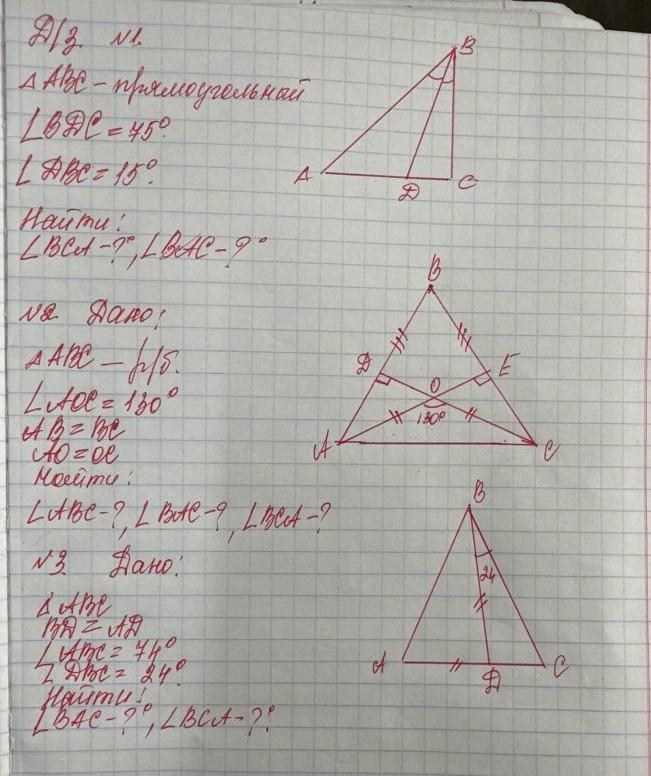 Д/з. №1.
△ABC – прямоугольный
∠BDC = 75°
∠DBC = 15°.
Найти:
∠BCA-?°, ∠BAC-?°
B
A
D
C
№2 Дано:
△ABC – р/б.
∠AOC = 130°
AB = BC
AO = OC
Найти:
∠ABC-?, ∠BAC-?, ∠BCA-?
B
D
E
O
130°
A
C
№3 Дано:
△ABC
BD = AD
∠ABC = 74°
∠DBC = 24°
Найти:
∠BAC-?°, ∠BCA-?°
B
24
A
D
C